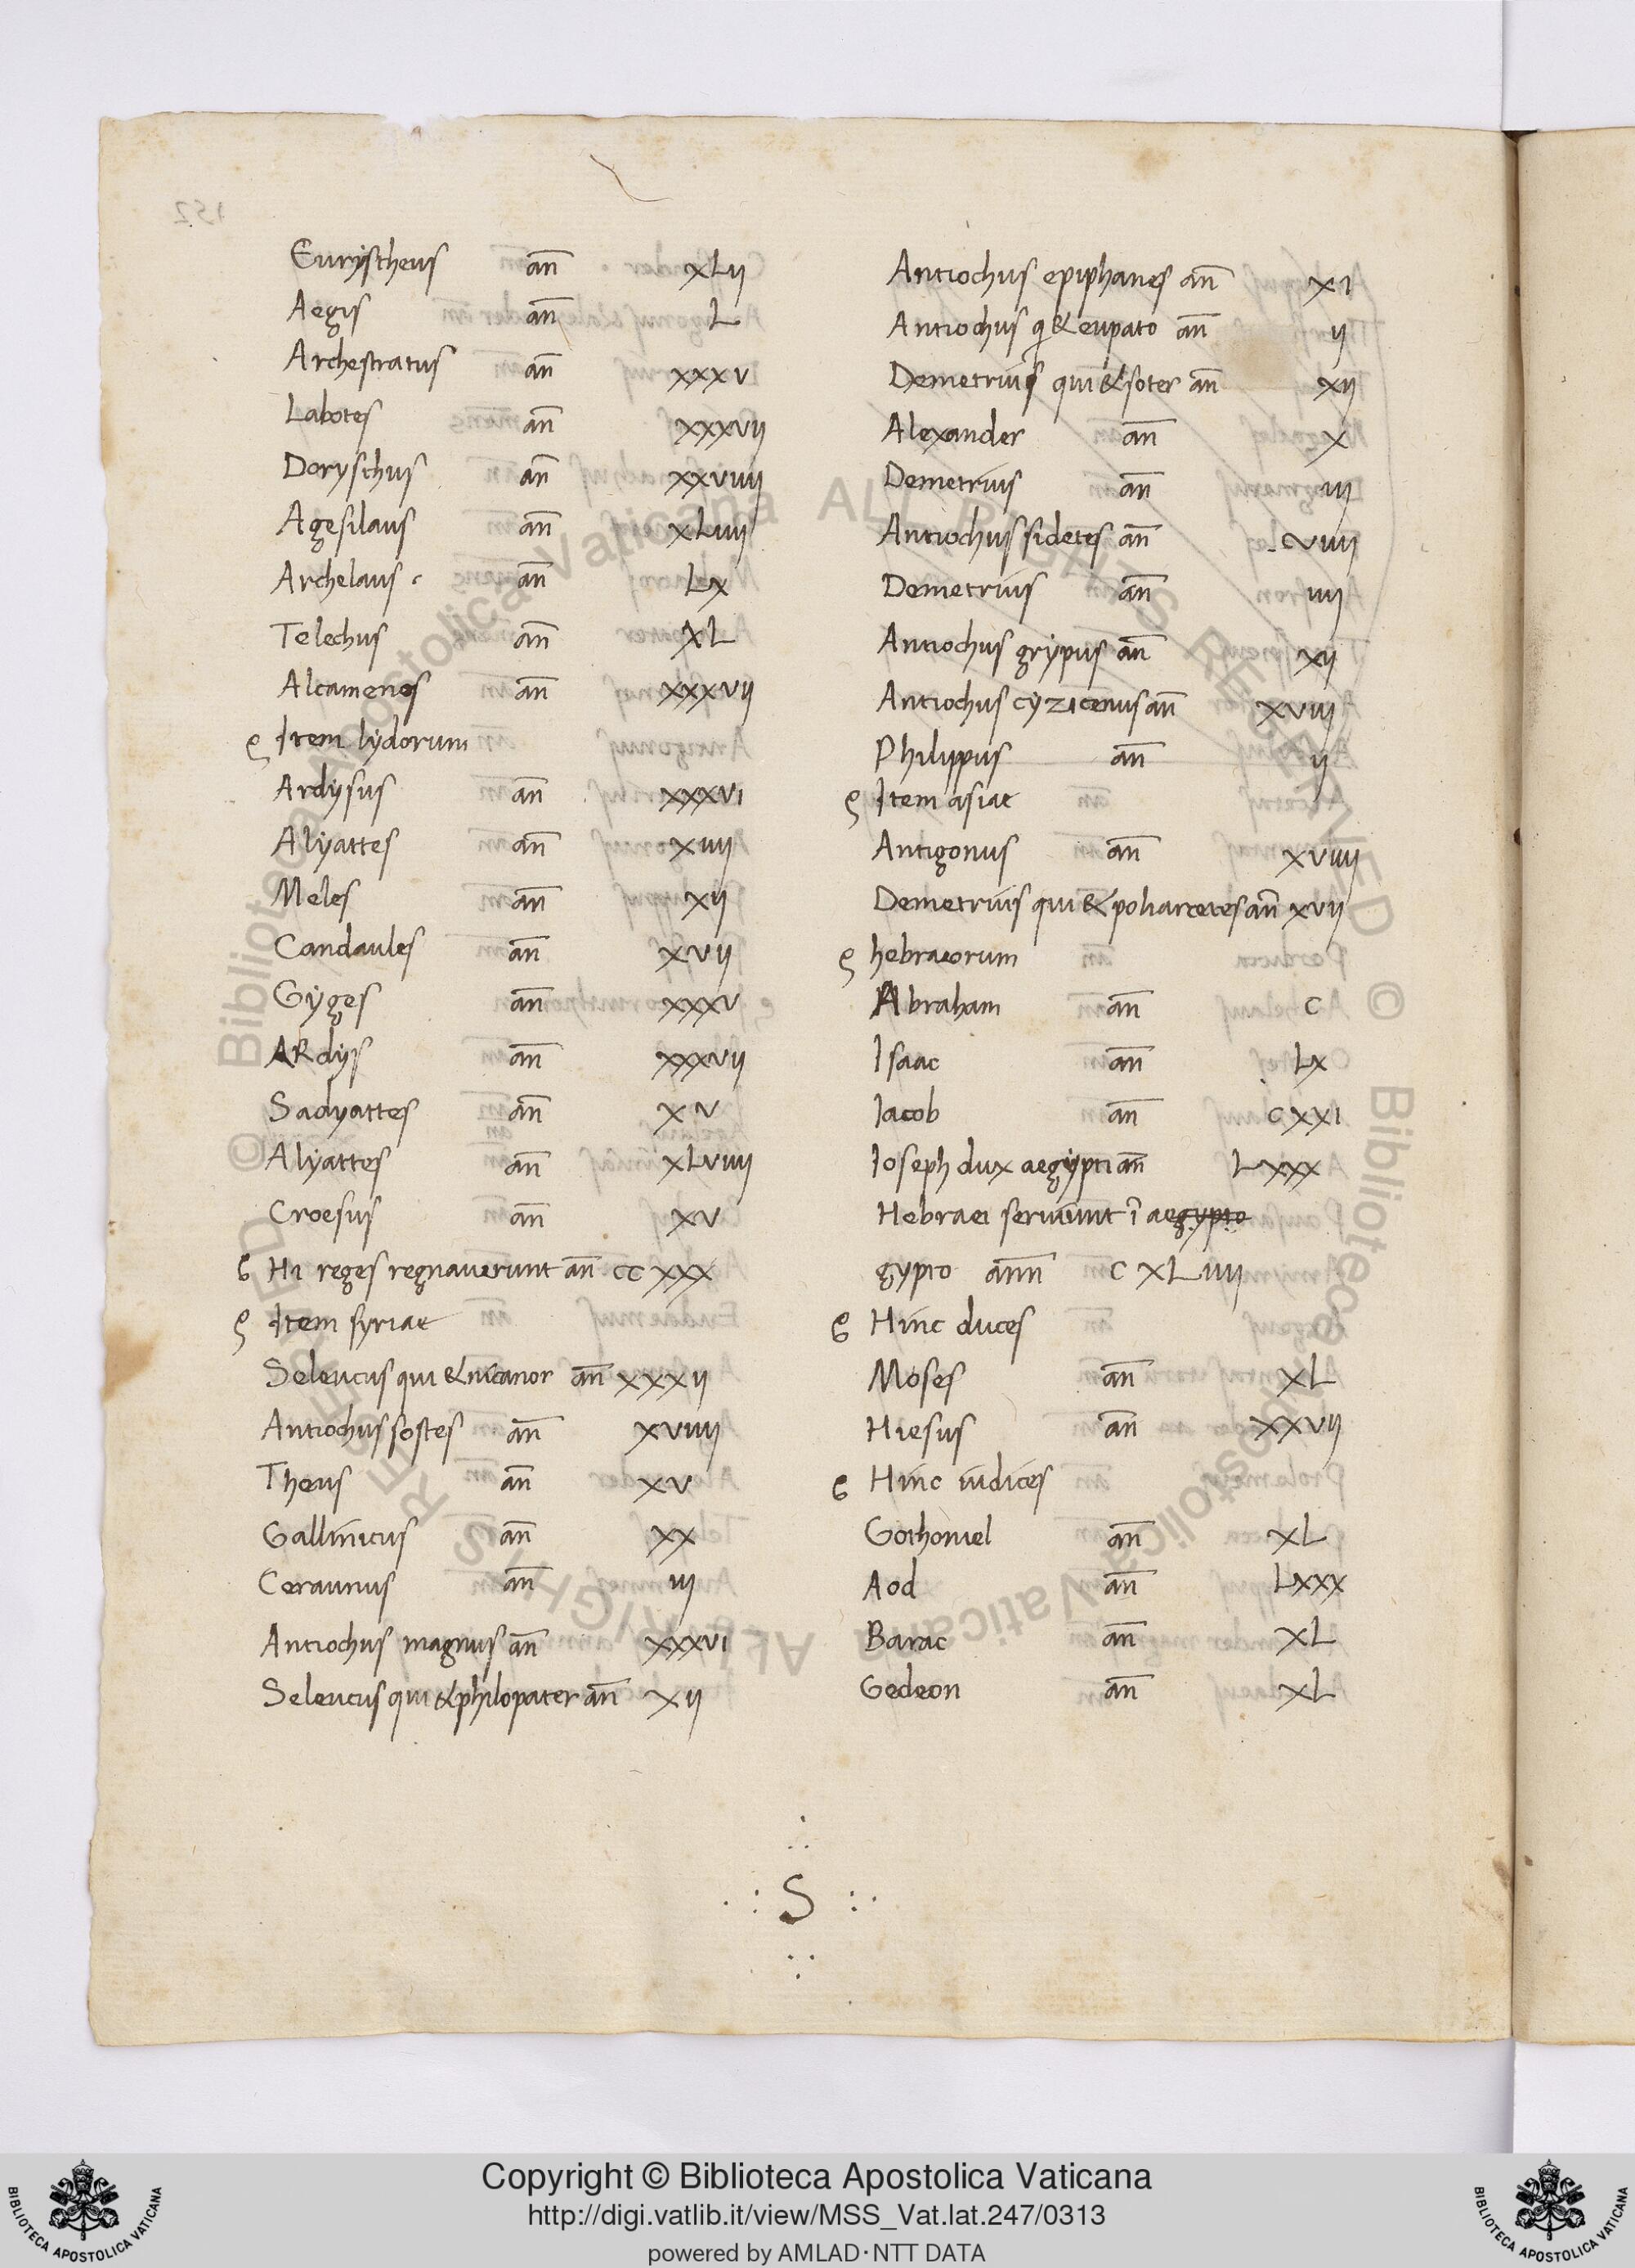 Eurystheus an̄ XLii
Aegis an̄ L
Archestratus an̄ XXXV
Labotes an̄ XXXVii
Doryschus an̄ XXViiii
Agesilaus an̄ XLiiii
Archelaus an̄ LX
Telechus an̄ XL
Alcamenes an̄ XXXVii
Item lydorum
Ardysus an̄ XXXVi
Alyattes an̄ Xiiii
Meles an̄ Xii
Candaules an̄ XVii
Gyges an̄ XXXV
ARdys an̄ XXXVii
Sadyattes an̄ XV
Alyattes an̄ XLViiii
Croesus an̄ XV
Hi reges regnaverunt an̄ CCXXX
Item syriae
Seleucus qui & nicanor an̄ XXXii
Antiochus sostes an̄ XViiii
Theus an̄ XV
Gallinicus an̄ XX
Ceraunus an̄ iii
Antiochus magnus an̄ XXXVi
Seleucus qui & philopater an̄ Xii
Antiochus epiphanes an̄ XI
Antiochus q & eupato an̄ ii
Demetrius qui & soter an̄ Xii
Alexander an̄ X
Demetrius an̄ iii
Antiochus sidetes an̄ Viiii
Demetrius an̄ iiii
Antiochus grypus an̄ Xii
Antiochus cyzicenus an̄ XViii
Philippus an̄ ii
Item asiae
Antigonus an̄ XViiii
Demetrius qui & poliarcetes an̄ XVii
hebraeorum
Abraham an̄ C
Isaac an̄ LX
Iacob an̄ CXXI
Ioseph dux aegypti an̄ LXXX
Hebraei seruiunt ī aegypto
gypto ann̄ CXLiiii
Hinc duces
Moses an̄ XL
Hiesus an̄ XXVii
Hinc iudices
Gothoniel an̄ XL
Aod an̄ LXXX
Barac an̄ XL
Gedeon an̄ XL
S
152
© Biblioteca Apostolica Vaticana ALL RIGHTS RESERVED © Biblioteca Apostolica Vaticana ALL RIGHTS RESERVED
Copyright © Biblioteca Apostolica Vaticana
http://digi.vatlib.it/view/MSS_Vat.lat.247/0313
powered by AMLAD·NTT DATA
BIBLIOTECA APOSTOLICA VATICANA
BIBLIOTECA APOSTOLICA VATICANA